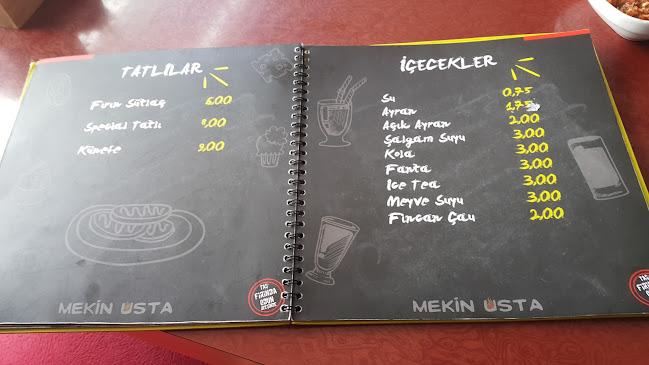 TATLILAR
Fırın Sütlaç 6,00
Special Tatlı 8,00
Künefe 9,00
MEKİN USTA
TAŞ
FIRINDA
ODUN
İÇECEKLER
Su 0,75
Ayran 1,75
Açık Ayran 2,00
Şalgam Suyu 3,00
Kola 3,00
Fanta 3,00
Ice Tea 3,00
Meyve Suyu 3,00
Fincan Çay 2,00
MEKİN USTA
TAŞ
FIRINDA
ODUN